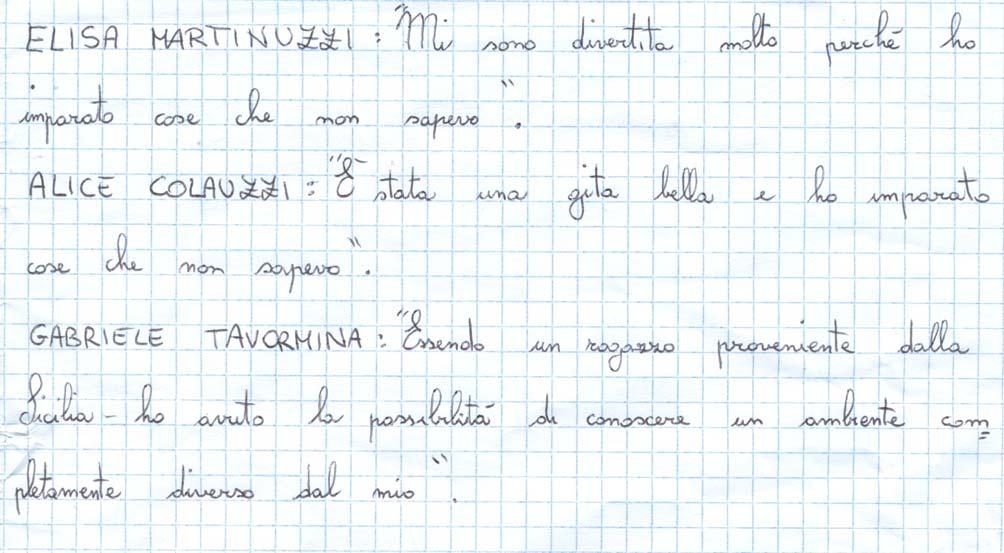 ELISA MARTINUZZI : "Mi sono divertita molto perchē ho
imparato cose che non sapevo".
ALICE COLAUZZI : "È stata una gita bella e ho imparato
cose che non sapevo".
GABRIELE TAVORMINA : "Essendo un ragazzo proveniente dalla
Sicilia - ho avuto la possibilità di conoscere un ambiente com=
pletamente diverso dal mio".